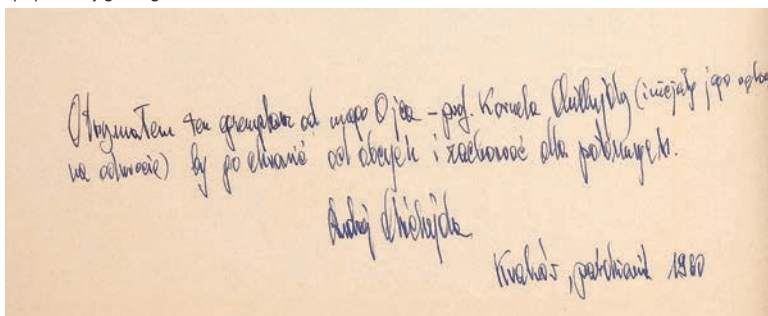 Otrzymałem ten egzemplarz od mego Ojca – prof. Kornela Michejdy (inicjały jego
na odwrocie) by go chronić od obcych i zachować dla potomnych.
Andrzej Michejda
Kraków, październik 1980